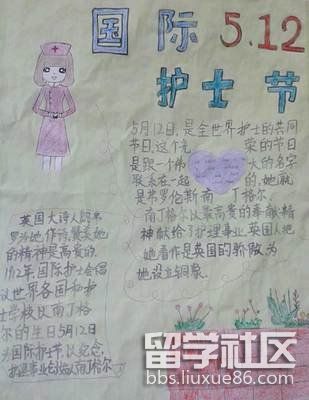 国际 5.12
护士节
5月12日,是全世界护士的共同
节日,这个光荣的节日
是跟一个伟大的名字
联系在一起的,她就
是弗罗伦斯南丁格尔。
南丁格尔以崇高贵的奉献精神
精神献给了护理事业,英国人把
她看作是英国的骄傲为
她设立铜象。
英国大诗人
罗
精神是高贵的
1912年国际护士会倡
议世界各国和护
士学校以南丁格
尔的生日5月12日
为国际护士节以纪念
护理事业创始人南丁格尔
留学社区
bbs.liuxue86.com